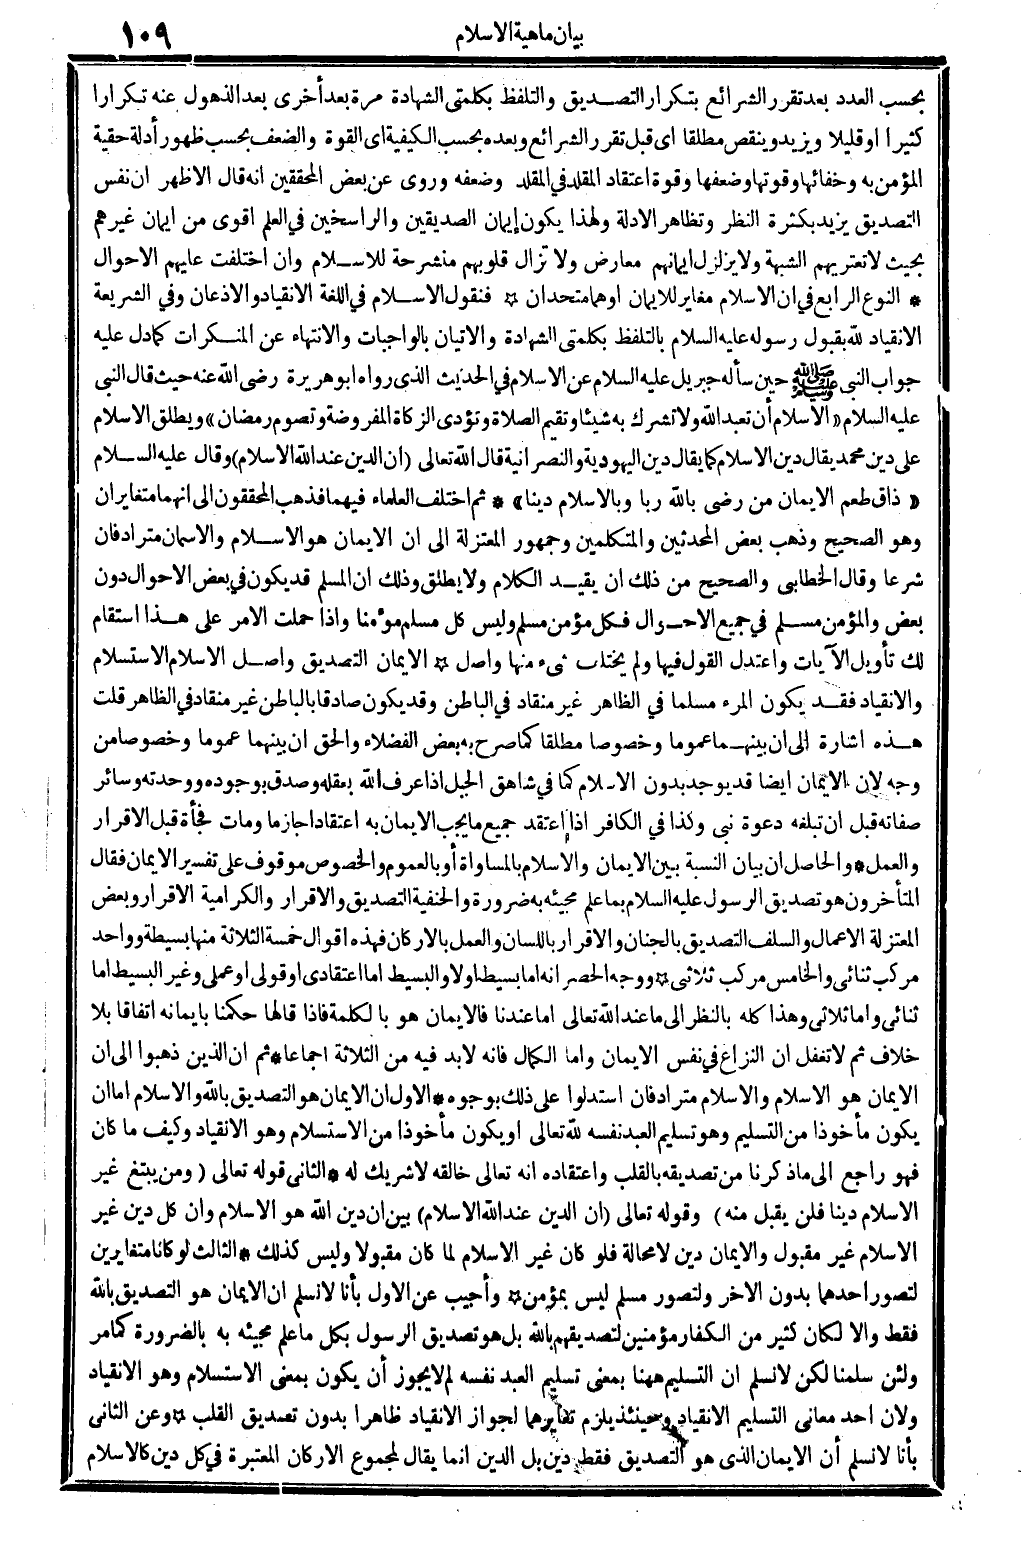 بيان ماهية الاسلام
١٠٩
بحسب العدد بعد تقرر الشرائع بتكرار التصديق والتلفظ بكلمتى الشهادة مرة بعد أخرى بعد الذهول عنه تكرارا
كثيرا او قليلا ويزيد وينقص مطلقا اى قبل تقرر الشرائع وبعده بحسب الكيفية اى القوة والضعف بحسب ظهور أدلة حقية
المؤمن به وخفائها وقوتها وضعفها وقوة اعتقاد المقلد في المقلد وضعفه وروى عن بعض المحققين انه قال الاظهر ان نفس
التصديق يزيد بكثرة النظر وتظاهر الادلة ولهذا يكون إيمان الصديقين والراسخين في العلم اقوى من ايمان غيرهم
بحيث لا تعتريهم الشبهة ولا يزلزل ايمانهم معارض ولا تزال قلوبهم منشرحة للاسلام وان اختلفت عليهم الاحوال
* النوع الرابع في ان الاسلام مغاير للايمان او هما متحدان ☆ فنقول الاسلام في اللغة الانقياد والاذعان وفي الشريعة
الانقياد لله بقبول رسوله عليه السلام بالتلفظ بكلمتى الشهادة والاتيان بالواجبات والانتهاء عن المنكرات كما دل عليه
جواب النبى ﷺ حين سأله جبريل عليه السلام عن الاسلام في الحديث الذى رواه ابو هريرة رضى الله عنه حيث قال النبى
عليه السلام « الاسلام أن تعبد الله ولا تشرك به شيئا وتقيم الصلاة وتؤدى الزكاة المفروضة وتصوم رمضان » ويطلق الاسلام
على دين محمد يقال دين الاسلام كما يقال دين اليهودية والنصرانية قال الله تعالى (ان الدين عند الله الاسلام) وقال عليه السلام
« ذاق طعم الايمان من رضى بالله ربا وبالاسلام دينا » * ثم اختلف العلماء فيهما فذهب المحققون الى انهما متغايران
وهو الصحيح وذهب بعض المحدثين والمتكلمين وجمهور المعتزلة الى ان الايمان هو الاسلام والاسمان مترادفان
شرعا وقال الخطابى والصحيح من ذلك ان يقيد الكلام ولا يطلق وذلك ان المسلم قد يكون في بعض الاحوال دون
بعض والمؤمن مسلم في جميع الاحوال فكل مؤمن مسلم وليس كل مسلم مؤمنا واذا حملت الامر على هذا استقام
لك تأويل الآيات واعتدل القول فيها ولم يختلف شىء منها واصل ☆ الايمان التصديق واصل الاسلام الاستسلام
والانقياد فقد يكون المرء مسلما في الظاهر غير منقاد في الباطن وقد يكون صادقا بالباطن غير منقاد في الظاهر قلت
هذه اشارة الى ان بينهما عموما وخصوصا مطلقا كما صرح به بعض الفضلاء والحق ان بينهما عموما وخصوصا من
وجه لان الايمان ايضا قد يوجد بدون الاسلام كما في شاهق الجبل اذا عرف الله بعقله وصدق بوجوده ووحدته وسائر
صفاته قبل ان تبلغه دعوة نبى وكذا في الكافر اذا اعتقد جميع ما يجب الايمان به اعتقادا جازما ومات فجأة قبل الاقرار
والعمل * والحاصل ان بيان النسبة بين الايمان والاسلام بالمساواة أو بالعموم والخصوص موقوف على تفسير الايمان فقال
المتأخرون هو تصديق الرسول عليه السلام بما علم مجيئه به ضرورة والحنفية التصديق والاقرار والكرامية الاقرار وبعض
المعتزلة الاعمال والسلف التصديق بالجنان والاقرار باللسان والعمل بالاركان فهذه اقوال خمسة الثلاثة منها بسيطة وواحد
مركب ثنائى والخامس مركب ثلاثى ☆ ووجه الحصر انه اما بسيط اولا والبسيط اما اعتقادى او قولى او عملى وغير البسيط اما
ثنائى واما ثلاثى وهذا كله بالنظر الى ما عند الله تعالى اما عندنا فالايمان هو بالكلمة فاذا قالها حكمنا بايمانه اتفاقا بلا
خلاف ثم لا تغفل ان النزاع في نفس الايمان واما الكمال فانه لابد فيه من الثلاثة اجماعا * ثم ان الذين ذهبوا الى ان
الايمان هو الاسلام والاسلام مترادفان استدلوا على ذلك بوجوه * الاول ان الايمان هو التصديق بالله والاسلام اما ان
يكون مأخوذا من التسليم وهو تسليم العبد نفسه لله تعالى او يكون مأخوذا من الاستسلام وهو الانقياد وكيف ما كان
فهو راجع الى ما ذكرنا من تصديقه بالقلب واعتقاده انه تعالى خالقه لا شريك له * الثانى قوله تعالى ( ومن يبتغ غير
الاسلام دينا فلن يقبل منه ) وقوله تعالى (ان الدين عند الله الاسلام) بين ان دين الله هو الاسلام وان كل دين غير
الاسلام غير مقبول والايمان دين لا محالة فلو كان غير الاسلام لما كان مقبولا وليس كذلك * الثالث لو كانا متغايرين
لتصور احدهما بدون الاخر ولتصور مسلم ليس بمؤمن ☆ وأجيب عن الاول بأنا لا نسلم ان الايمان هو التصديق بالله
فقط والا لكان كثير من الكفار مؤمنين لتصديقهم بالله بل هو تصديق الرسول بكل ما علم مجيئه به بالضرورة كما مر
ولئن سلمنا لكن لا نسلم ان التسليم ههنا بمعنى تسليم العبد نفسه لم لا يجوز أن يكون بمعنى الاستسلام وهو الانقياد
ولان احد معانى التسليم الانقياد وحينئذ يلزم تغايرهما لجواز الانقياد ظاهرا بدون تصديق القلب ☆ وعن الثانى
بأنا لا نسلم أن الايمان الذى هو التصديق فقط دين بل الدين انما يقال لمجموع الاركان المعتبرة في كل دين كالاسلام